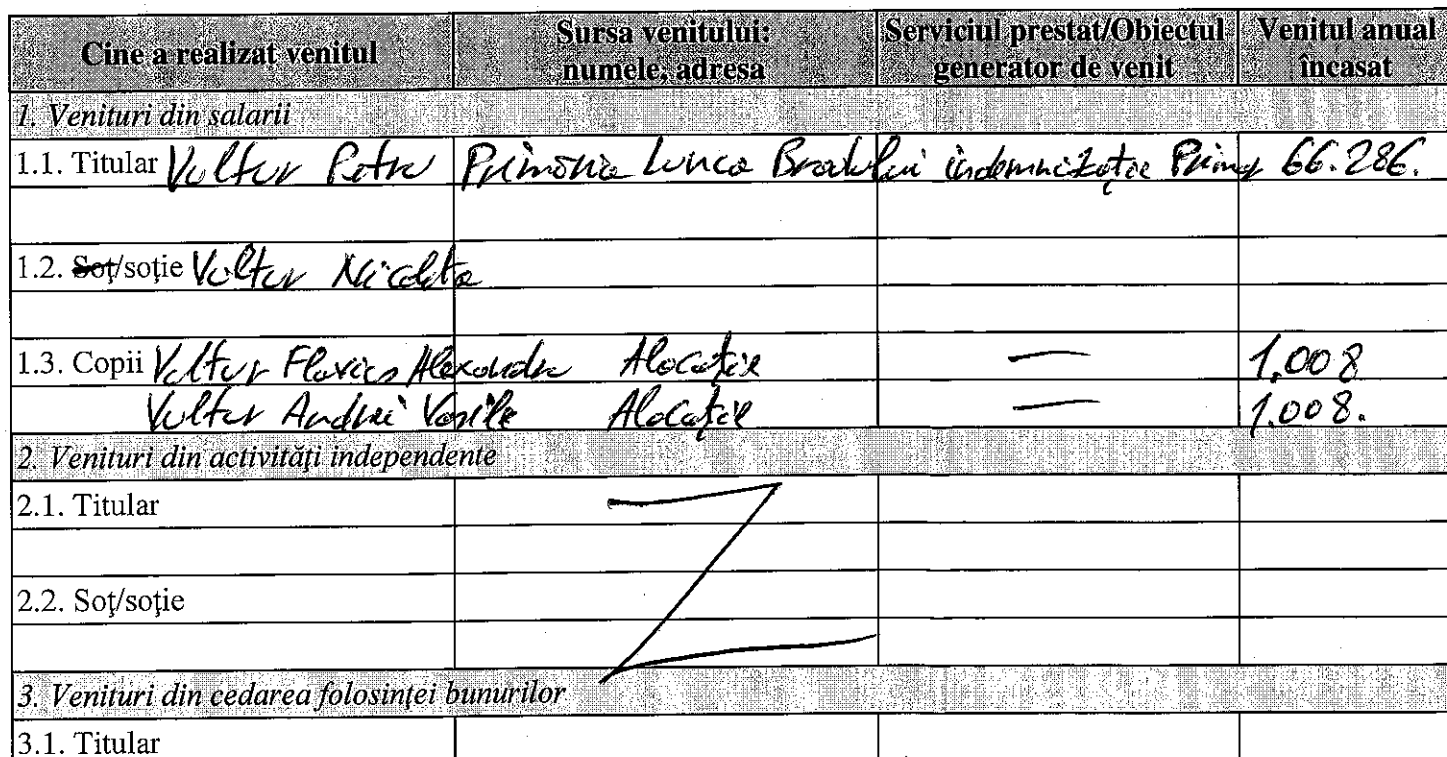 Cine a realizat venitul Sursa venitului: numele, adresa Serviciul prestat/Obiectul generator de venit Venitul anual încasat
1. Venituri din salarii
1.1. Titular Vultur Petru Primăria Lunca Bradului indemnizație Primar 66.286.
1.2. Soț/soție Vultur Nicoleta
1.3. Copii Vultur Flavius Alexandru Alocație — 1.008
Vultur Andrei Vasile Alocație — 1.008.
2. Venituri din activități independente
2.1. Titular
2.2. Soț/soție
3. Venituri din cedarea folosinței bunurilor
3.1. Titular